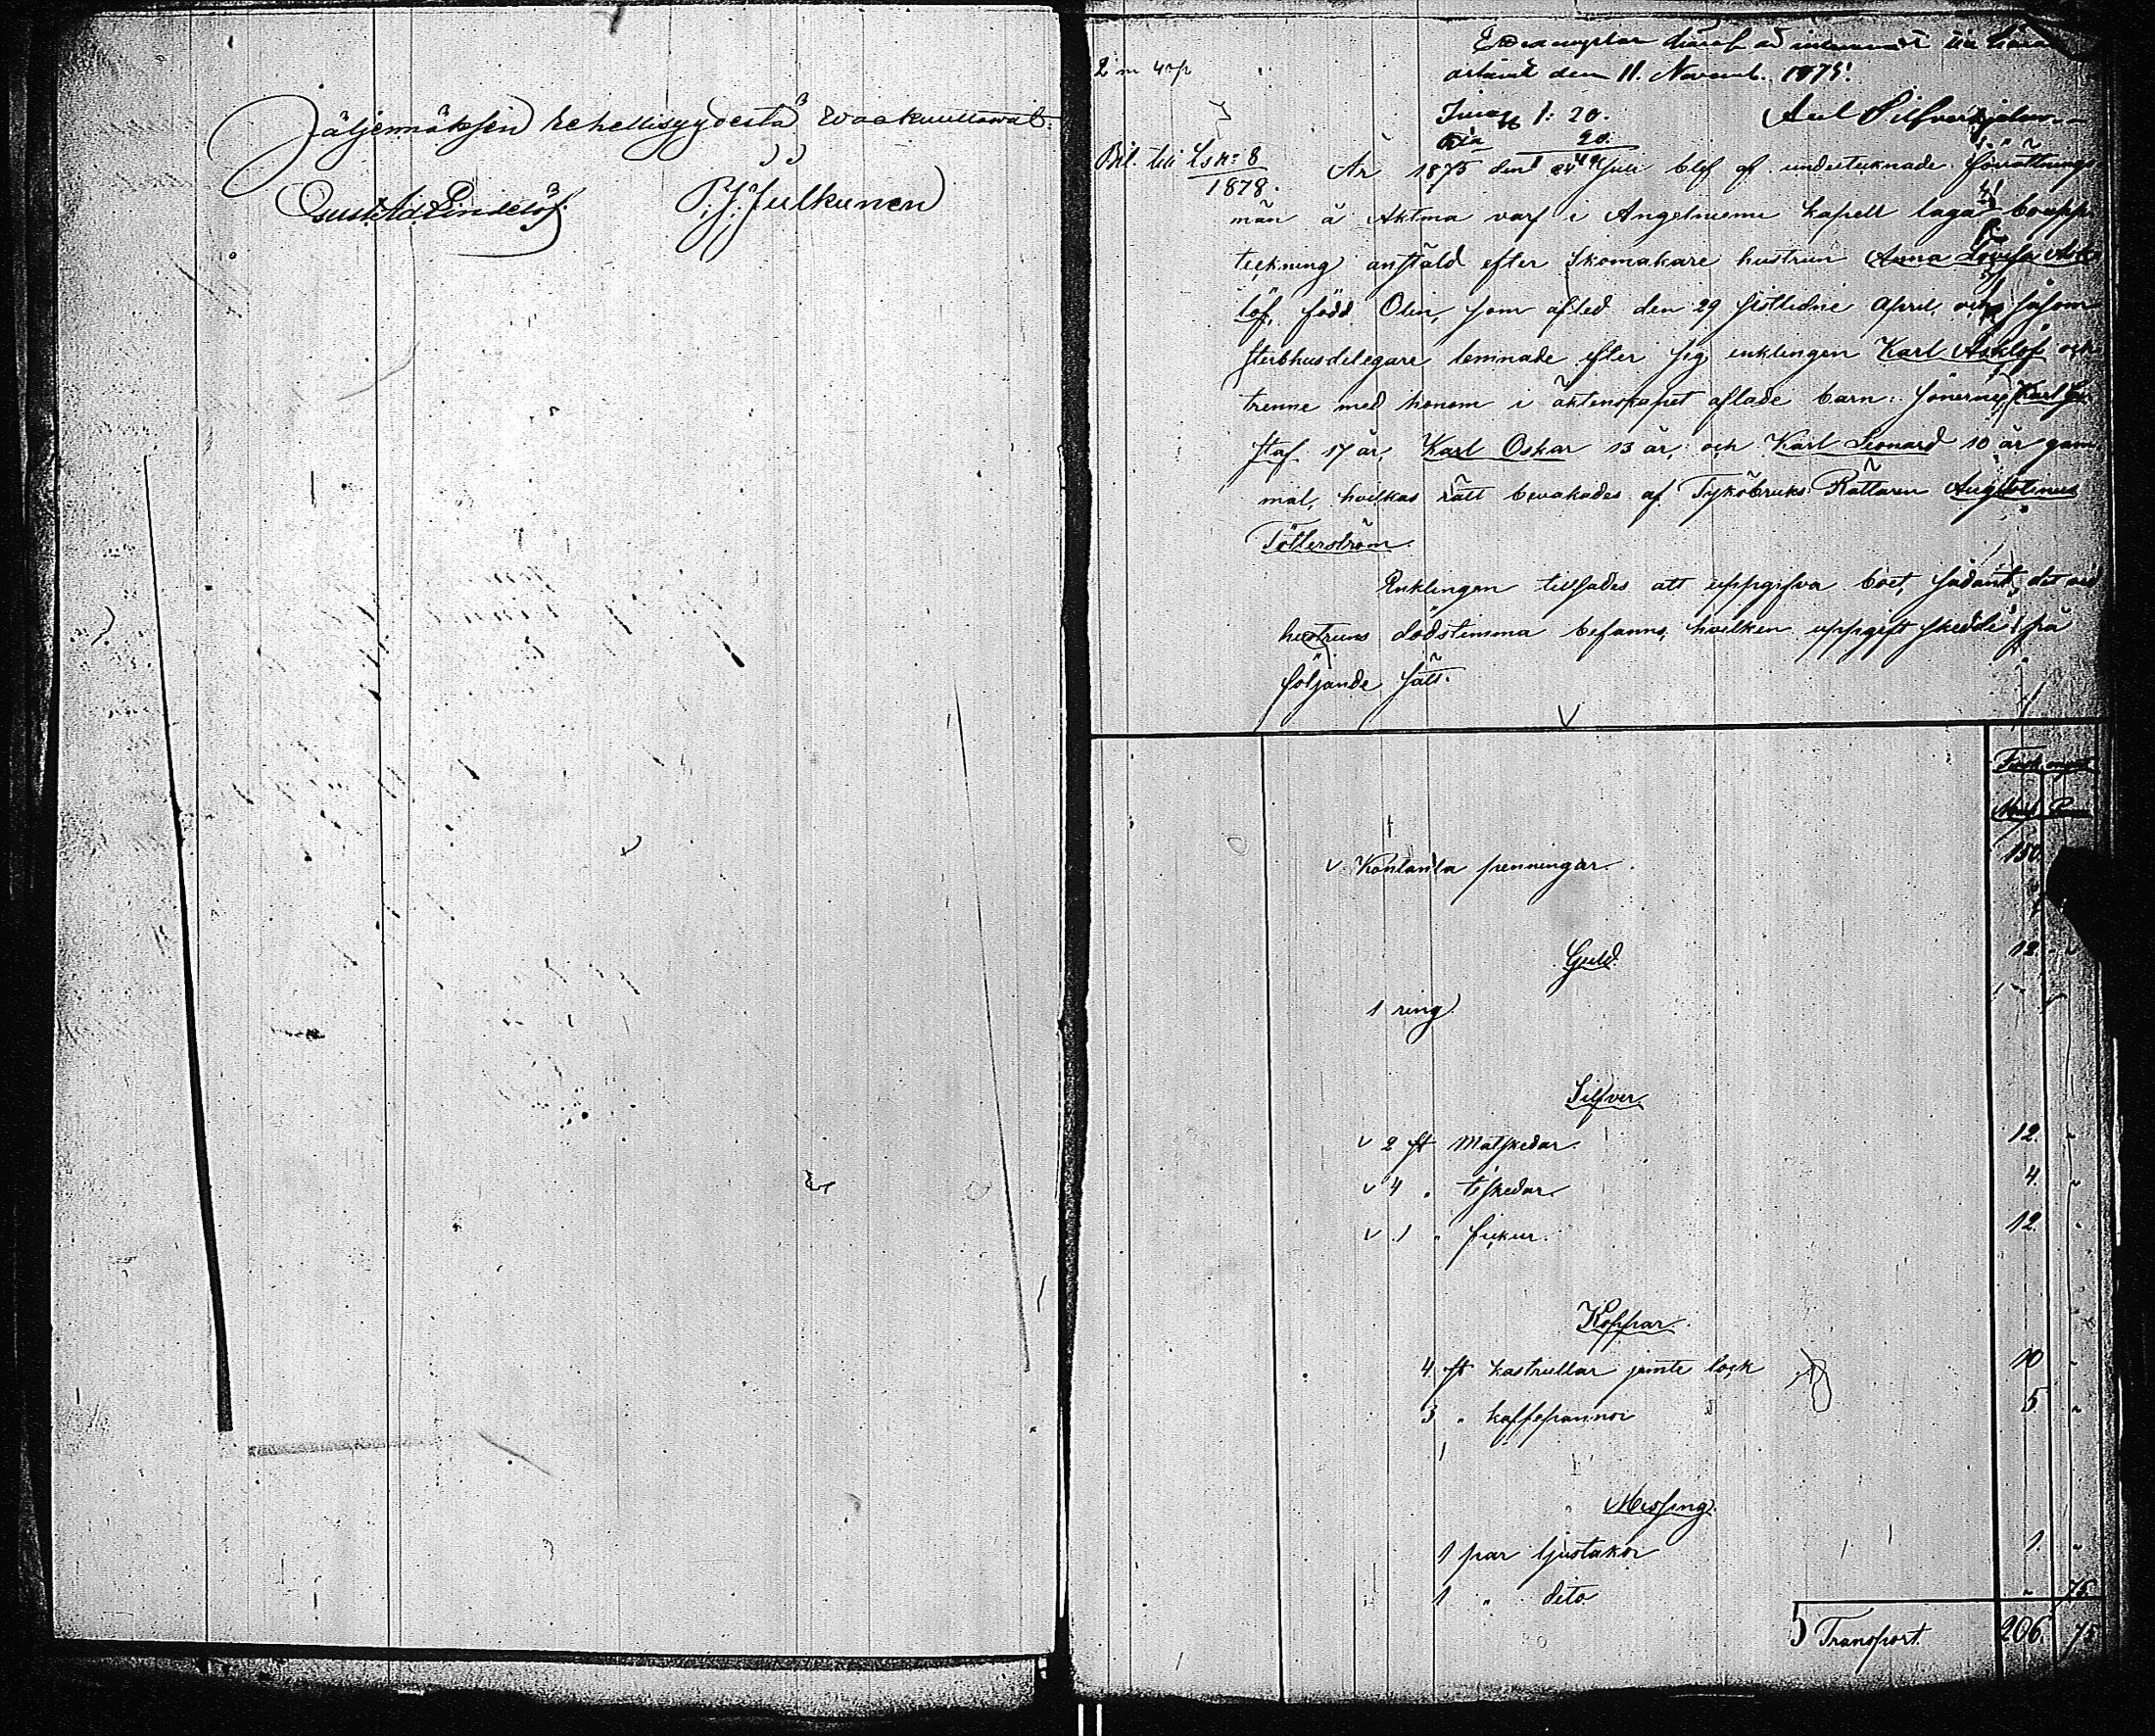 Jäljennöksen rehellisyydestä waakuuttawat:
Gust. Ad. Lindelöf. P. J. Julkunen
2 m 40 p
den 11. Novemb. 1875.
1: 20.
20.
Axel Silfverhjelm
Bil. till Lsk: 8
1878.
År 1875 den Juli blef af undertecknade förrättnings
män å Aktma varf i Angelniemi kapell laga boupp-
teckning anstäld efter Skomakare hustrun Anna Lovisa Ask-
löf, född Olin, som afled den 29 sistlidne April, och såsom
sterbhusdelegare lemnade efter sig enklingen Karl Asklöf och
trenne med honom i äktenskapet aflade barn: sönerne Karl Gu
staf 17 år, Karl Oskar 13 år, och Karl Leonard 10 år gam
mal, hvilkas rätt bevakades af Tyköbruks Rättaren Augustinus
Tötterström.
Enklingen tillsades att uppgifva boet, sådant det vid
hustruns dödstimma befanns, hvilken uppgift skedde på
följande sätt.
Mark Penni
Kontanta penningar. 150.
Guld.
1 ring. 12. "
Silfver.
2 st Matskedar. 12. "
4 " téskedar. 4. "
1 " fickur. 12. "
Koppar.
4 st kastrullar jemte lock 10 "
3 " kaffepannor 5 "
Messing.
1 par ljustakor 1. "
1 " dito " 75
Transport. 206. 75